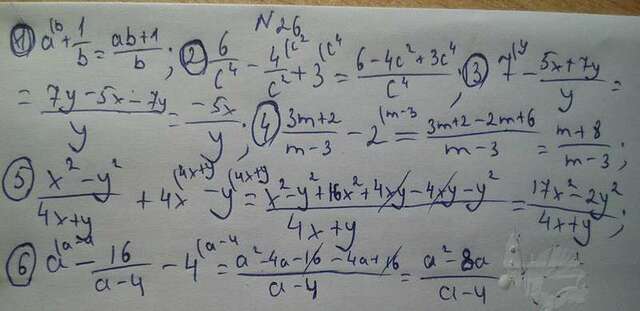 N 26
① a^(b + 1/b = (ab+1)/b ; ② 6/c⁴ - 4^(c²/c² + 3^(c⁴ = (6-4c²+3c⁴)/c⁴ ; ③ 7^(y - (5x+7y)/y =
= (7y-5x-7y)/y = (-5x)/y ; ④ (3m+2)/(m-3) - 2^(m-3 = (3m+2-2m+6)/(m-3) = (m+8)/(m-3) ;
⑤ (x²-y²)/(4x+y) + 4x^(4x+y - y^(4x+y = (x²-y²+16x²+4xy-4xy-y²)/(4x+y) = (17x²-2y²)/(4x+y) ;
⑥ a^(a-4 - 16/(a-4) - 4^(a-4 = (a²-4a-16-4a+16)/(a-4) = (a²-8a)/(a-4)